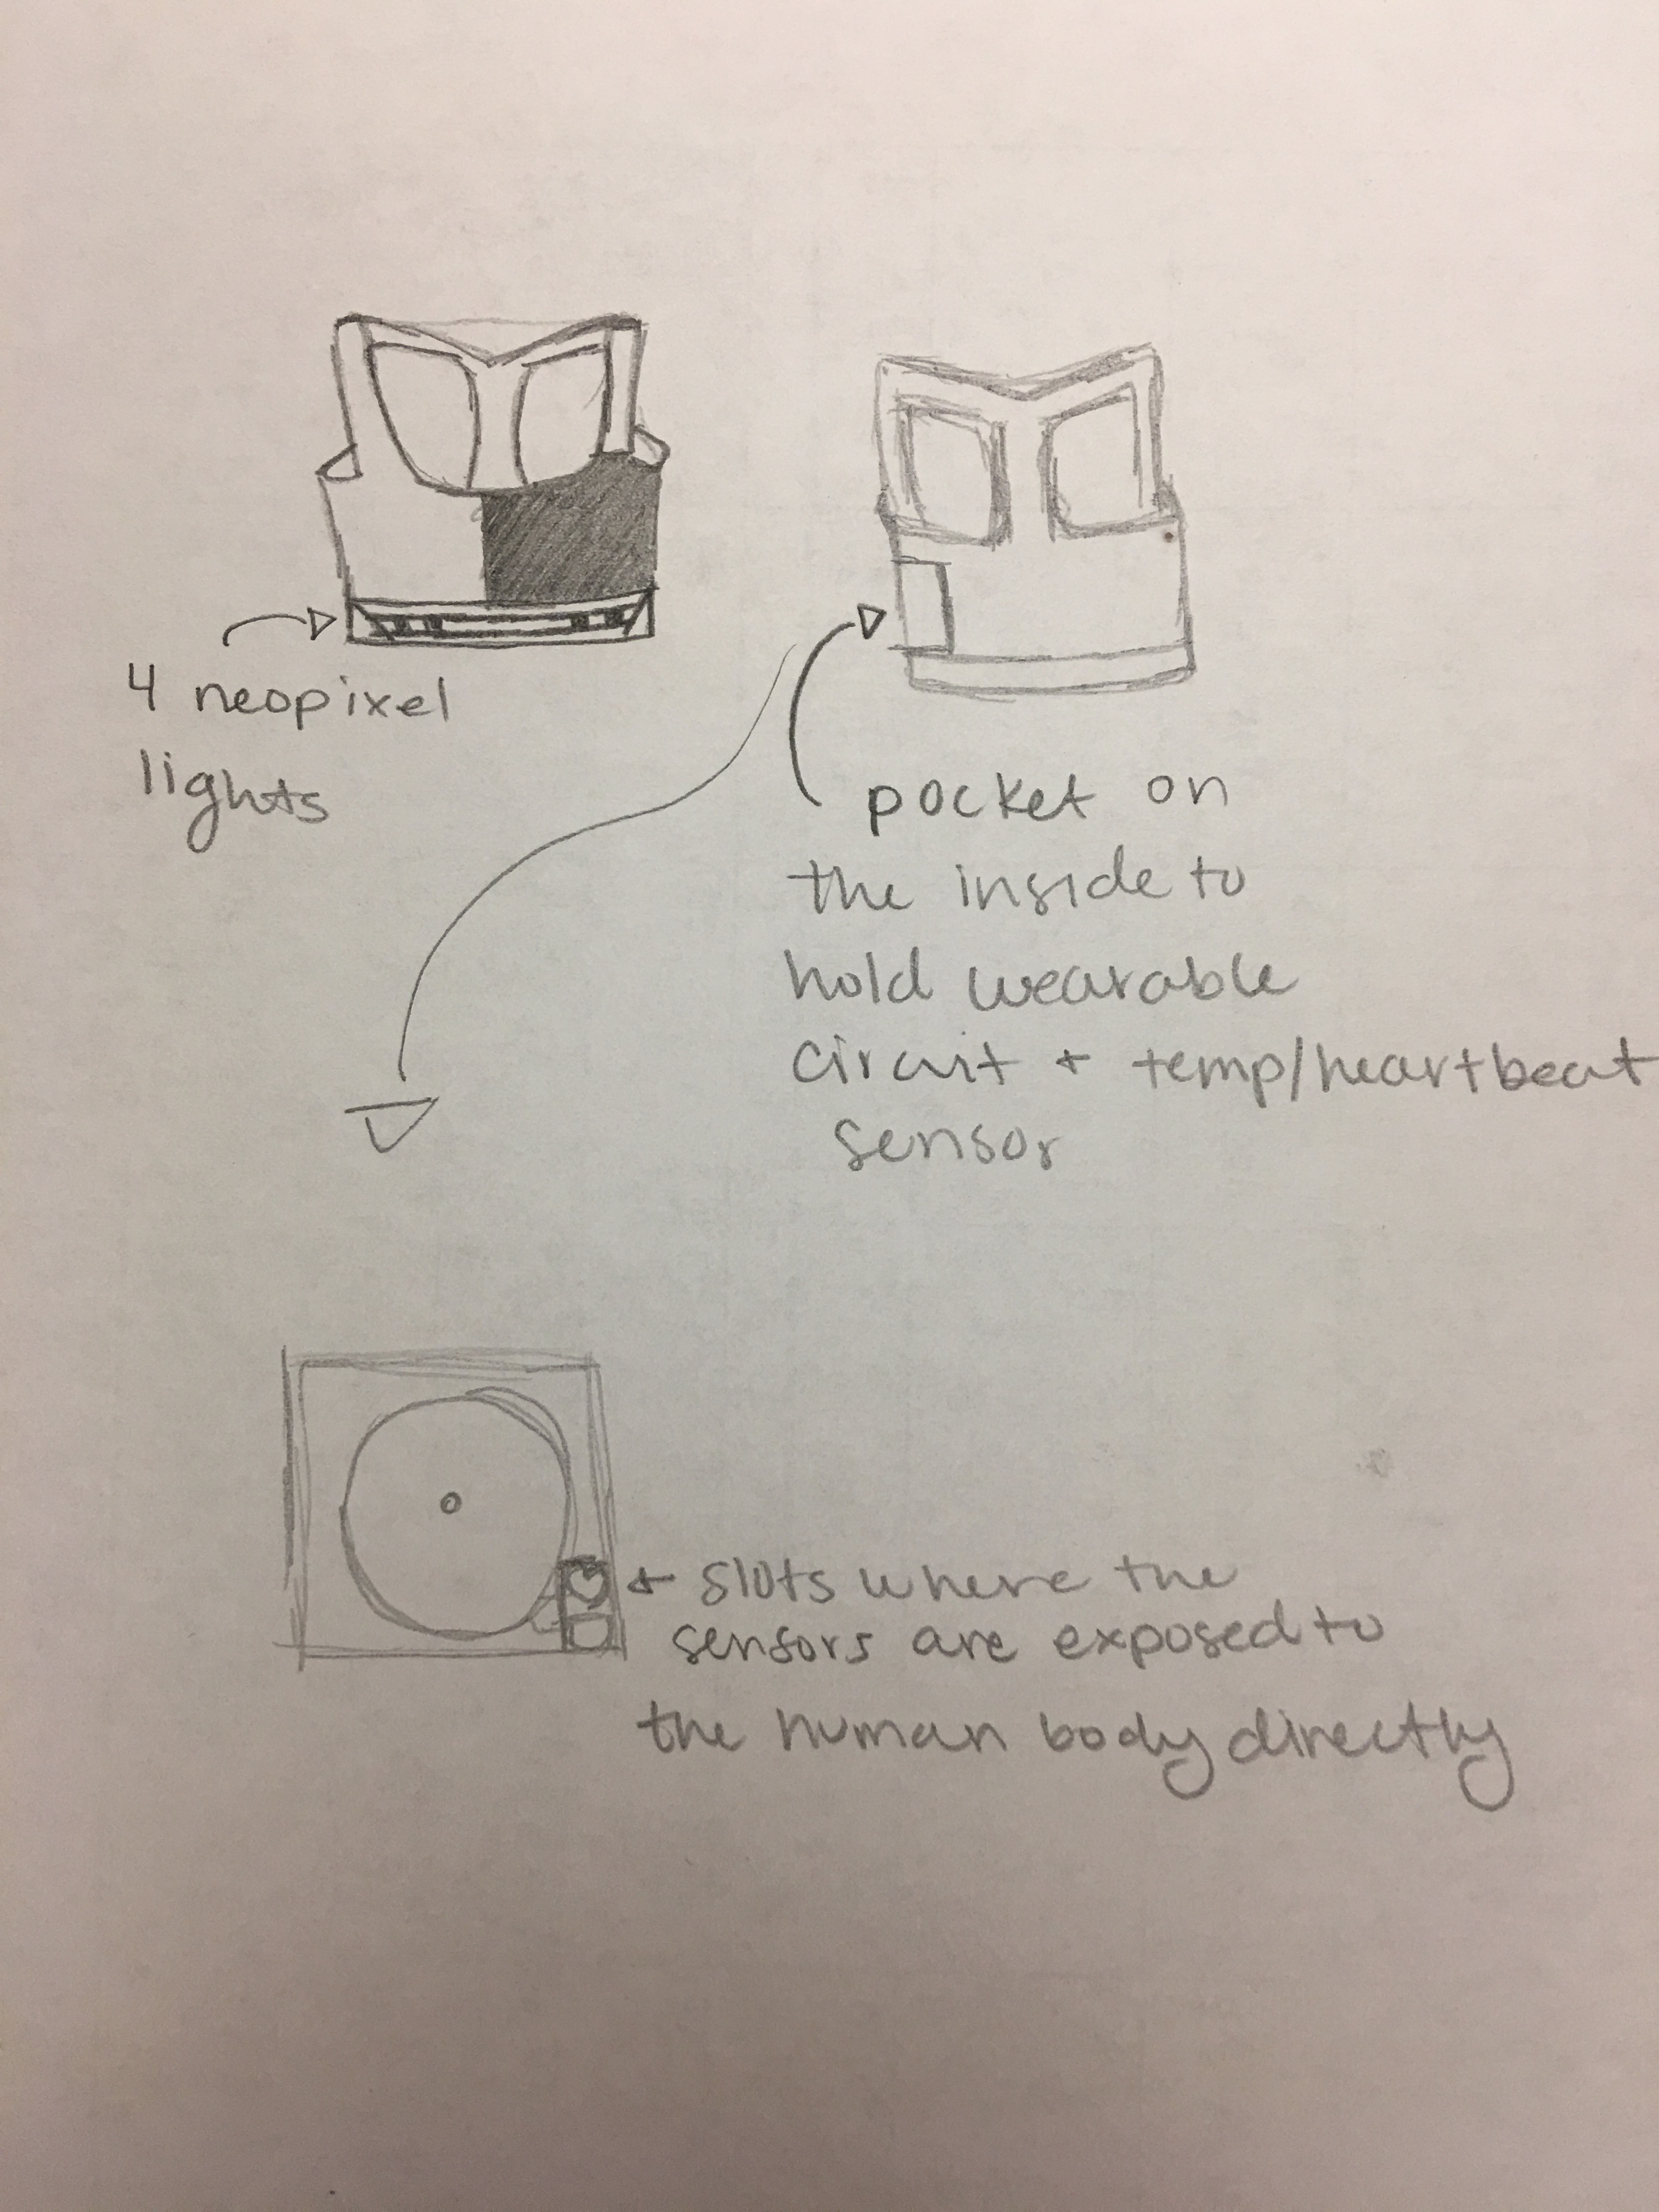 4 neopixel
lights
pocket on
the inside to
hold wearable
circuit + temp/heartbeat
sensor
+ slots where the
sensors are exposed to
the human body directly